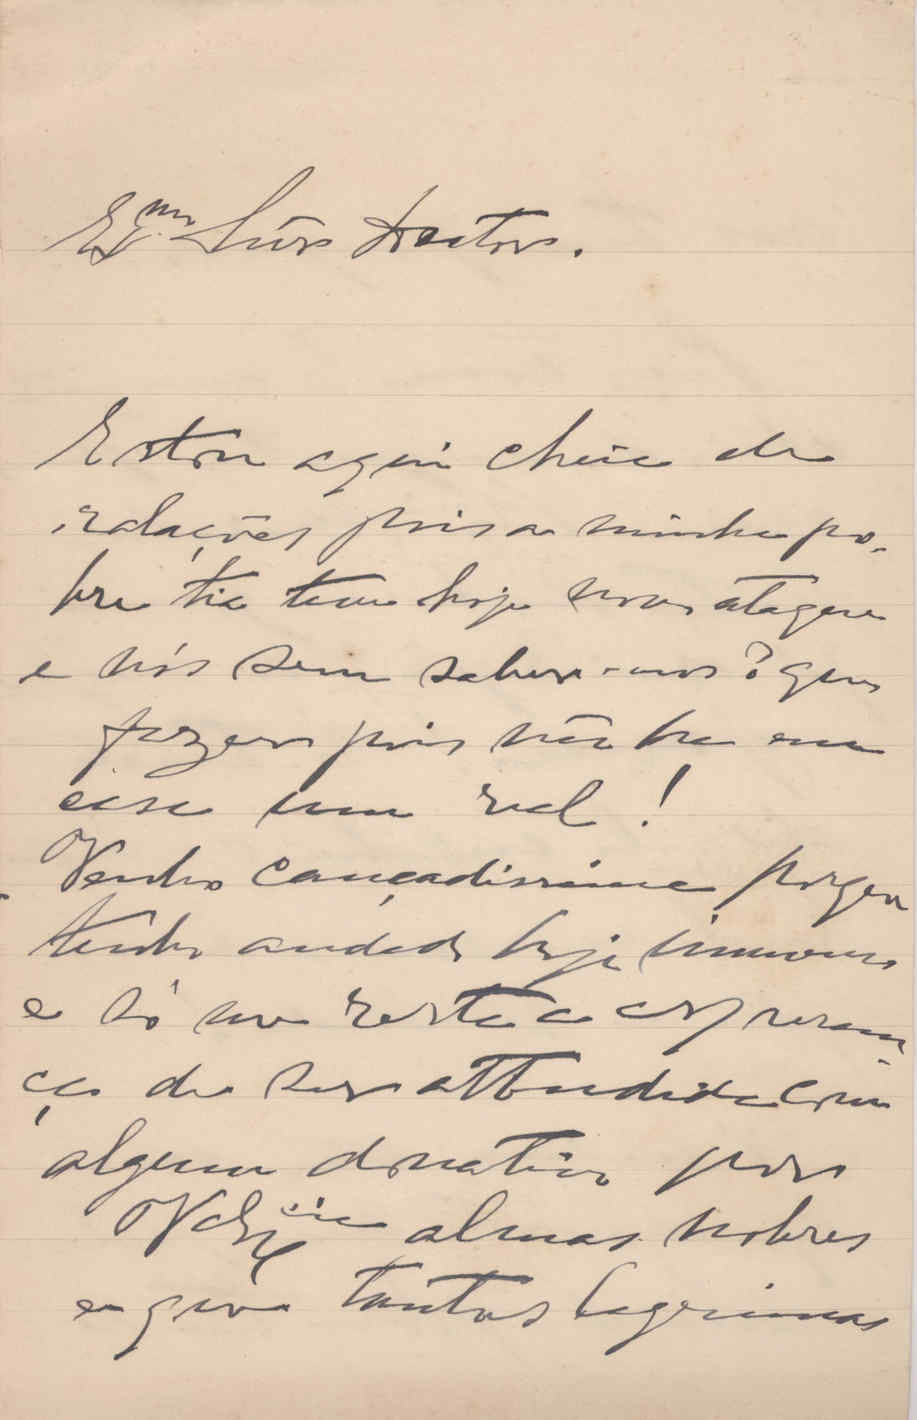 Exmo Snr Doutor.
Estou aqui cheia de
ralações pois a minha po-
bre tia teve hoje novo ataque
e nós sem saber-mos? que
fazer pois não ha em
casa um real!
Venho cançadissima porque
tenho andado hoje immenso
e só me resta a esperan-
ça de ser attendida com
algum donativo por
V Exia almas nobres
e que tantas lagrimas